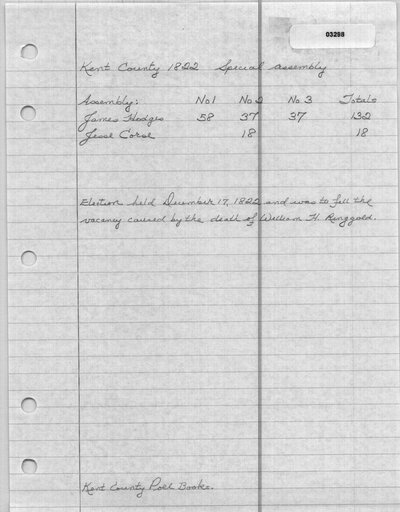 03298
Kent County 1822 Special Assembly
Assembly: No 1 No 2 No 3 Totals
James Hodges 58 37 37 132
Jesse Corse 18 18
Election held December 17, 1822 and was to fill the
vacancy caused by the death of William H. Ringgold.
Kent County Poll Books.